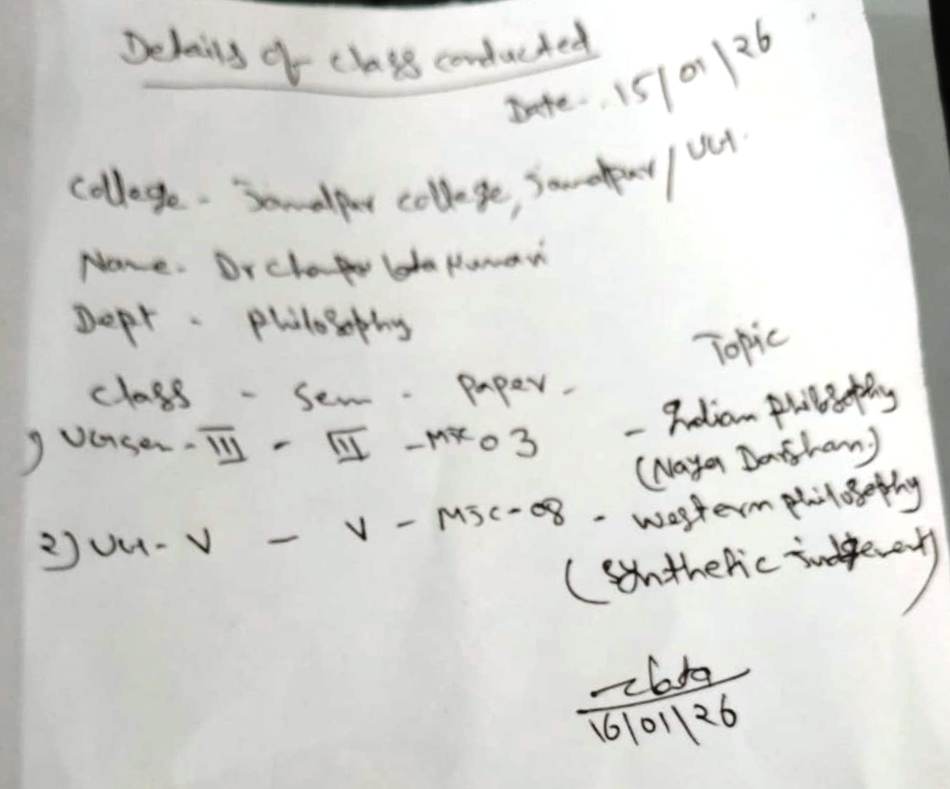 Details of class conducted
Date - 15/01/26
College - Jamalpur college, Jamalpur / UG
Name - Dr Lata Kumari
Dept - Philosophy
Class - Sem - Paper - Topic
1) UG Sem - III - III - MJC 03 - Indian Philosophy
(Naya Darshan)
2) UG - V - V - MJC-08 - Western philosophy
(Synthetic judgement)
16/01/26